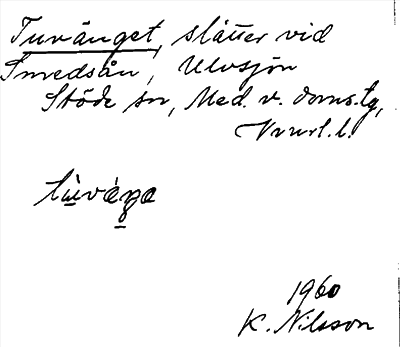 Tuvänget, slåtter vid
Smedsån, Ulvsjön
Stöde sn, Med. v. doms.tg,
Vnrl. l.
tùváŋa
1960
K. Nilsson